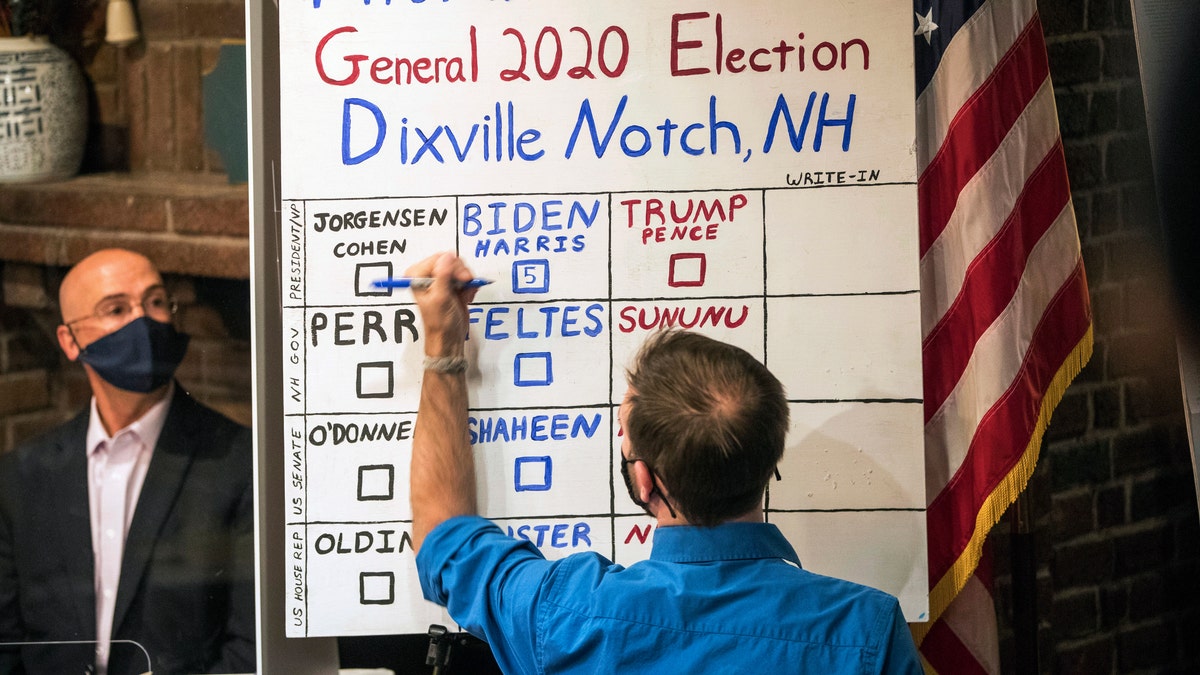 General 2020 Election
Dixville Notch, NH
WRITE-IN
PRESIDENT/VP
JORGENSEN
COHEN
BIDEN
HARRIS
5
TRUMP
PENCE
NH GOV
PERR
FELTES
SUNUNU
US SENATE
O'DONNE
SHAHEEN
US HOUSE REP
OLDIN